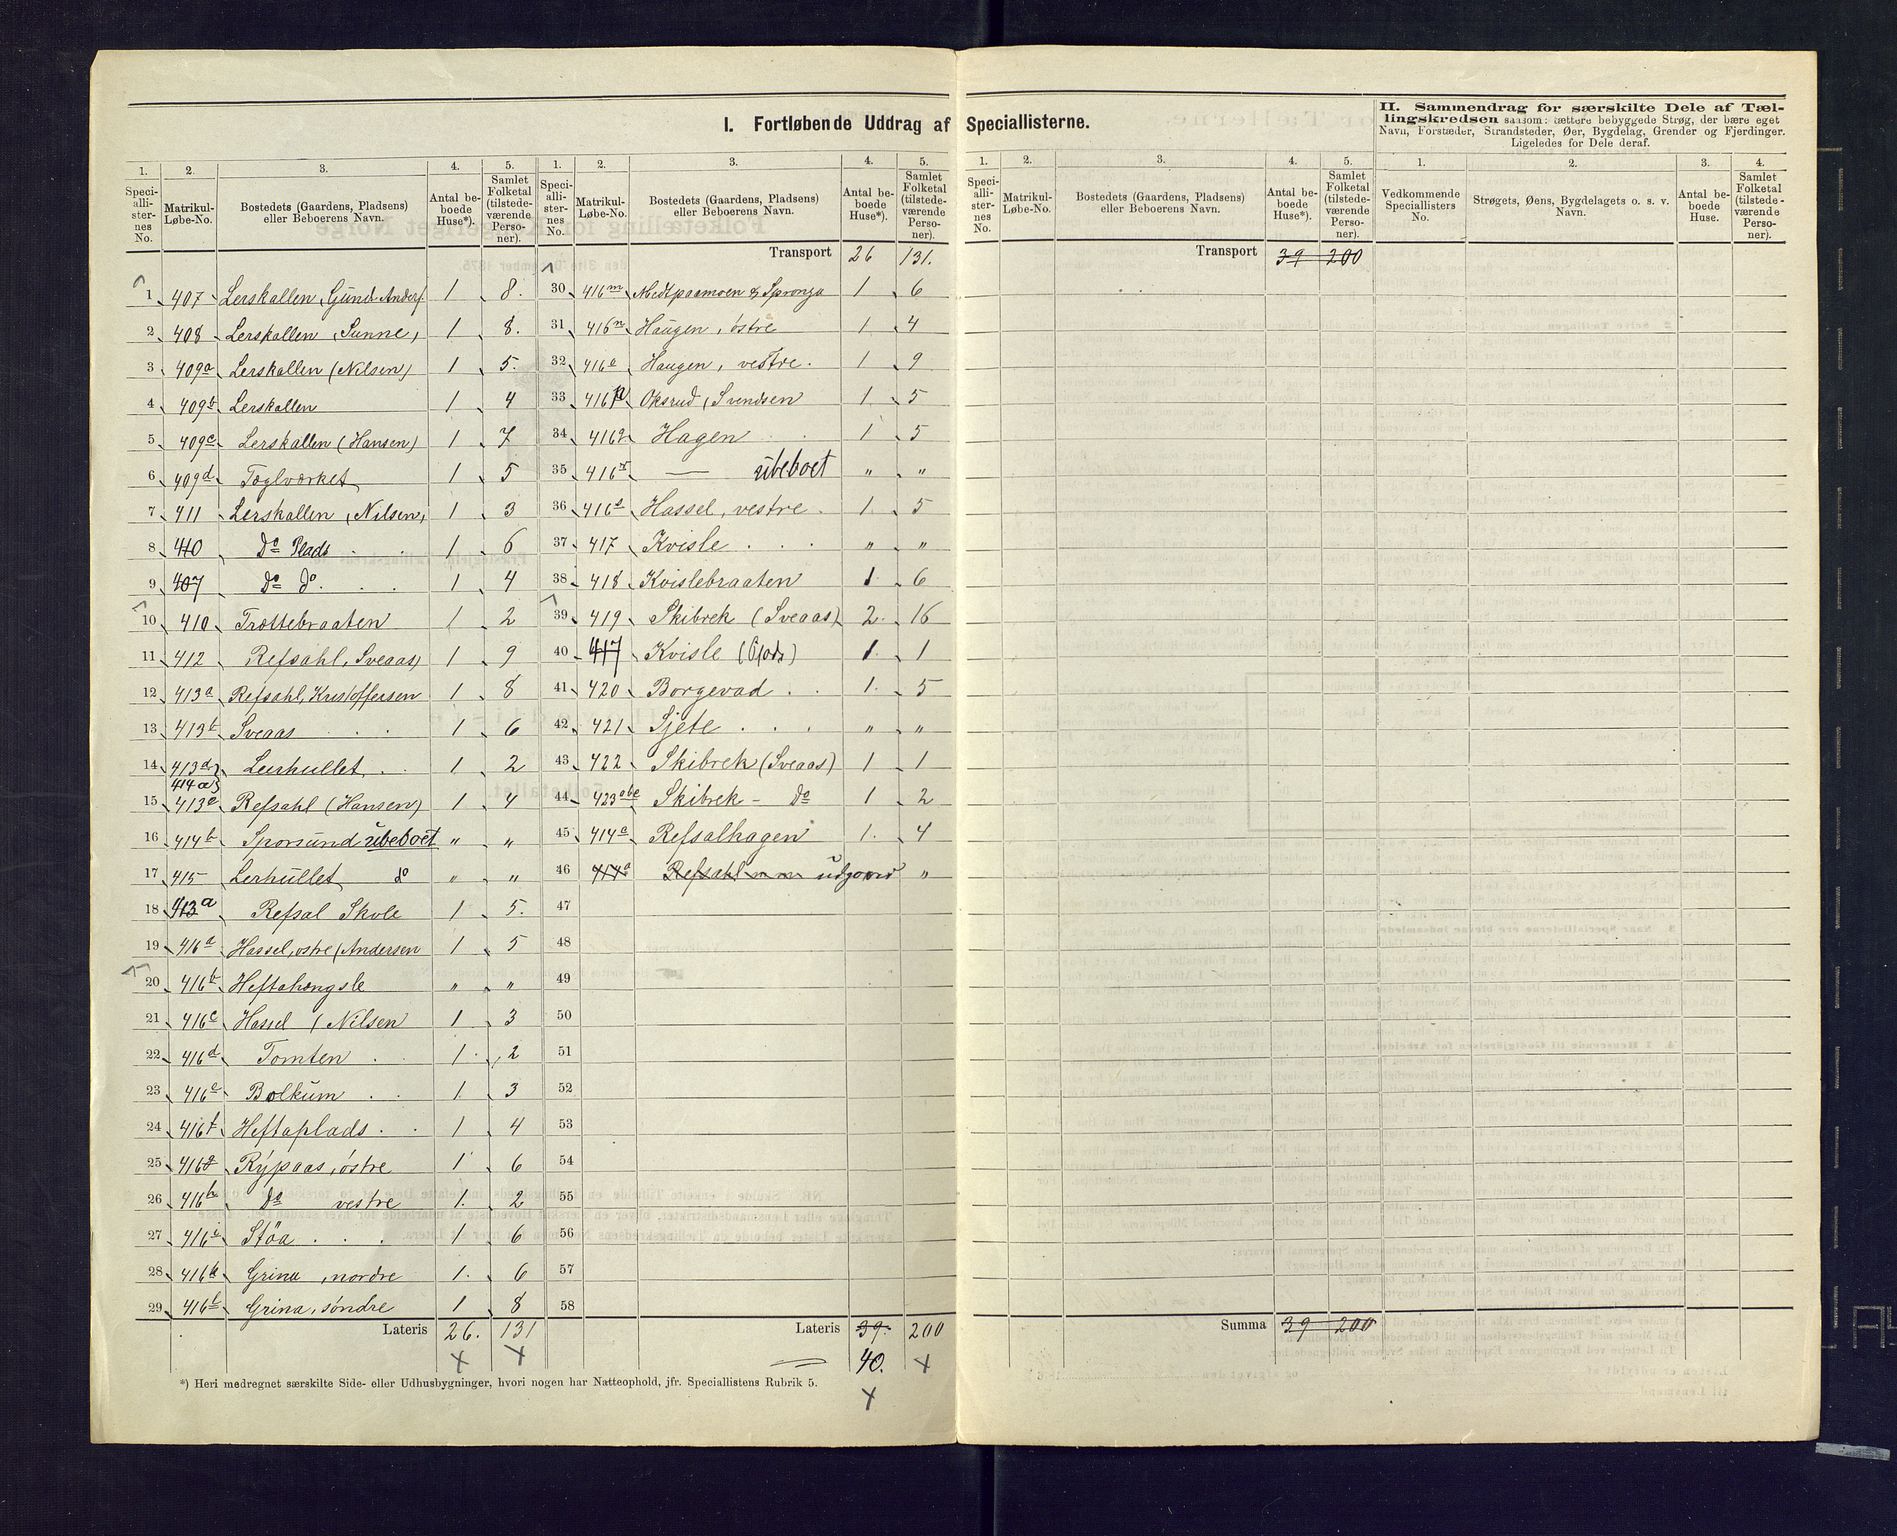 I. Fortløbende Uddrag af Speciallisterne.
II. Sammendrag for særskilte Dele af Tællingskredsen saasom: tættere bebyggede Strøg, der bære eget Navn, Forstæder, Strandsteder, Øer, Bygdelag, Grender og Fjerdinger. Ligeledes for Dele deraf.
1. 2. 3. 4. 5. 1. 2. 3. 4. 5. 1. 2. 3. 4. 5. 1. 2. 3. 4.
Speciallisternes No. Matrikul-Løbe-No. Bostedets (Gaardens, Pladsens) eller Beboerens Navn. Antal beboede Huse*). Samlet Folketal (tilstedeværende Personer).
Speciallisternes No. Matrikul-Løbe-No. Bostedets (Gaardens, Pladsens) eller Beboerens Navn. Antal beboede Huse*). Samlet Folketal (tilstedeværende Personer).
Speciallisternes No. Matrikul-Løbe-No. Bostedets (Gaardens, Pladsens) eller Beboerens Navn. Antal beboede Huse*). Samlet Folketal (tilstedeværende Personer).
Vedkommende Speciallisters No. Strøgets, Øens, Bygdelagets o. s. v. Navn. Antal beboede Huse. Samlet Folketal (tilstedeværende Personer).
1 407 Lerskallen, Gund. Anders. 1 8.
2 408 Lerskallen (Sunne) 1 8.
3 409a Lerskallen (Nilsen) 1 5.
4 409b Lerskallen 1 4
5 409c Lerskallen (Hansen) 1 7
6 409d Teglværket 1 5
7 411 Lerskallen (Nilsen) 1 3
8 410 Do Plads 1 6
9 407 Do do. 1 4
10 410 Trættebraaten 1 2
11 412 Refsahl, Sveaas) 1 9
12 413a Refsahl, Kristoffersen 1 8
13 413b Sveaas 1 6
14 413d Leirhullet 1 2
414a
15 413c Refsahl (Hansen) 1 4
16 414b Sporsund ubeboet " "
17 415 Lerhullet do " "
18 413a Refsal Skole 1 5.
19 416a Hassel, østre (Andersen 1 5
20 416b Heftahengsle " "
21 416c Hassel (Nilsen 1 3
22 416d Tomten 1 2
23 416e Bolkum 1 3
24 416f Heftaplads 1 4
25 416g Rypaas, østre 1 6
26 416h Do vestre 1 2
27 416i Stöa 1 6
28 416k Grina, nordre 1 6
29 416l Grina, søndre 1 8
Lateris 26. 131
Transport 26 131.
30 416m Medtpaamoen & Spronga 1 6
31 416n Haugen, østre 1 4
32 416o Haugen, vestre. 1 9
33 416p Oksrud, Svendsen 1 5
34 416q Hagen 1 5
35 416r — ubeboet " "
36 416s Hassel, vestre 1 5
37 417 Kvisle " "
38 418 Kvislebraaten 1 6
39 419 Skibrek (Sveaas) 2. 16
40 417 Kvisle 1 1
41 420 Borgevad 1 5
42 421 Sjete " "
43 422 Skibrek (Sveaas) 1 1
44 423abc Skibrek - Do 1 2
45 414a Refsalhagen 1 4
46 414a Refsahl udgaard "
47
48
49
50
51
52
53
54
55
56
57
58
Lateris 39. 200
40.
Transport 39 200
Summa 39 200
*) Heri medregnet særskilte Side- eller Udhusbygninger, hvori nogen har Natteophold, jfr. Speciallistens Rubrik 5.